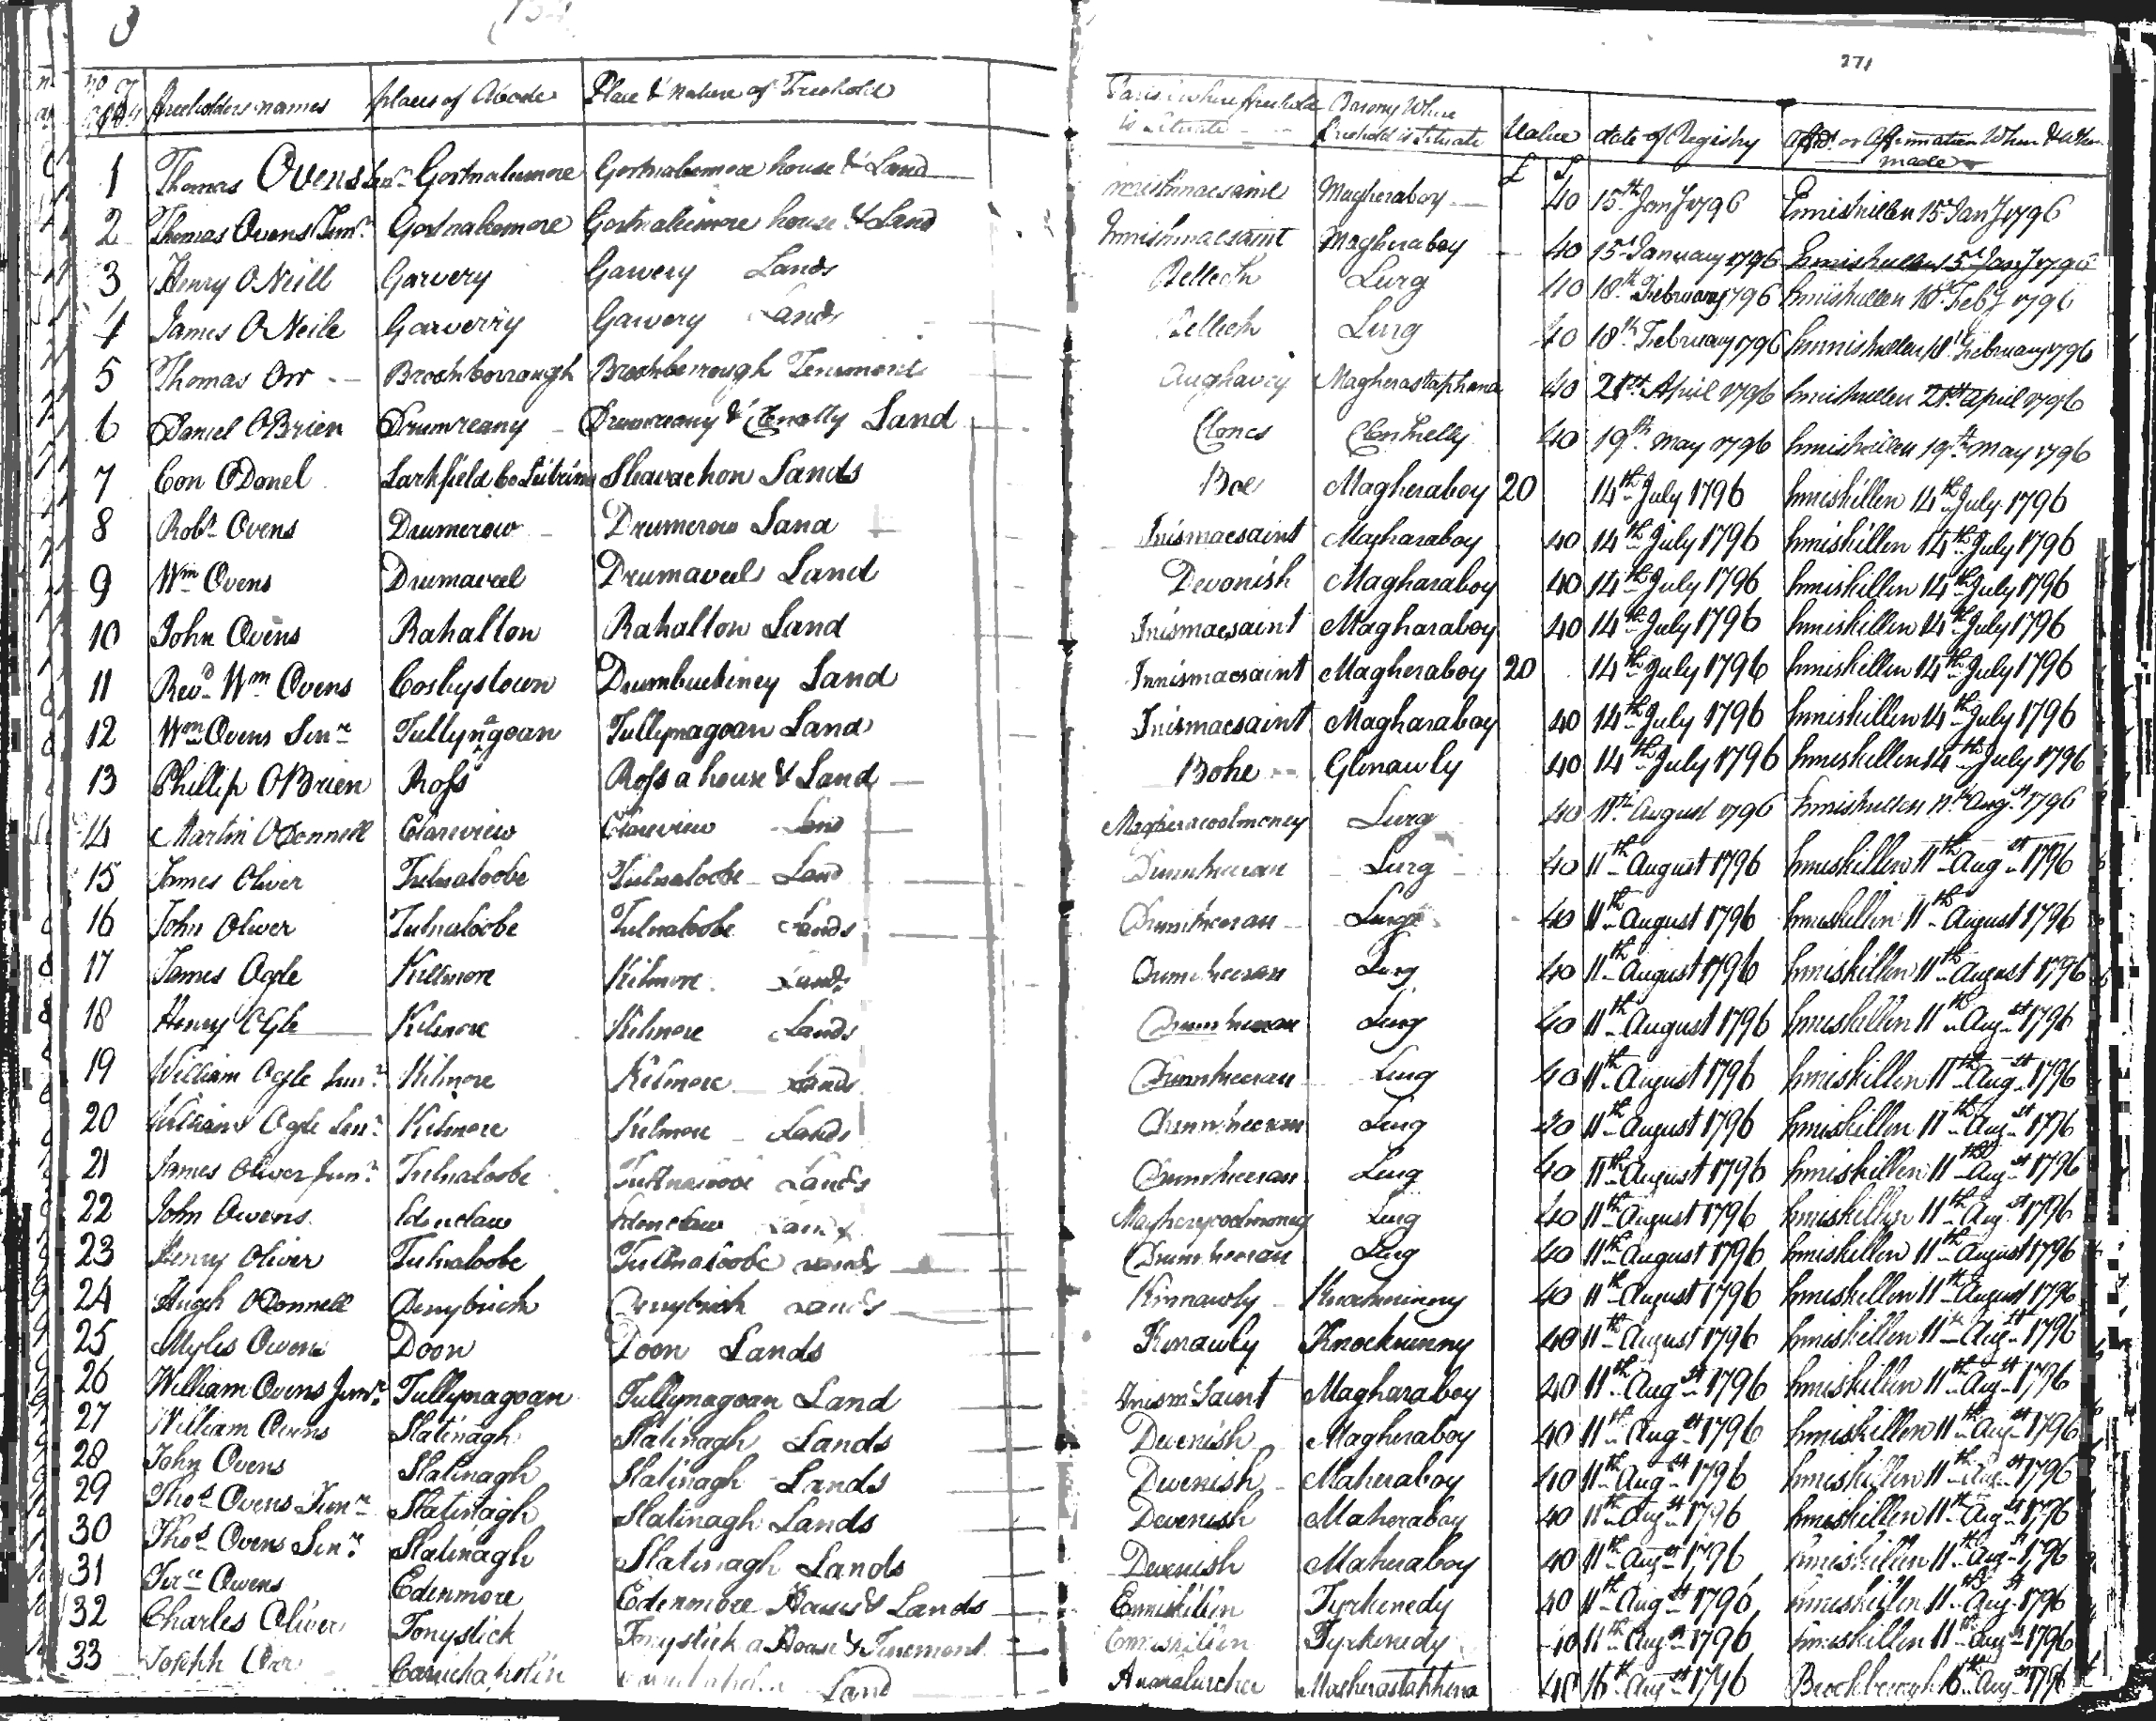 271
no of freeholders names places of Abode Place & nature of Freehold Parish where freehold is Situate Barony Where freehold is Situate Value date of Registry or Affirmation When & Where made
£ S
1 Thomas Ovens Senr Gortnalemore Gortnalemore house & Land Magheraboy 40 15th Jany 1796 Enniskillen 15 Jany 1796
2 Thomas Ovens Junr Gortnalemore Gortnalemore house & Land Innishmacsaint Magheraboy 40 15 January 1796 Enniskillen 15 Jany 1796
3 Henry ONeill Garvery Garvery Lands Belleek Lurg 40 18th February 1796 Enniskillen 18th Feby 1796
4 James ONeile Garverry Garvery Lands Belleek Lurg 40 18th February 1796 Enniskillen 18th February 1796
5 Thomas Orr Brookborrough Brookborrough Tenement Aughavey Magherastaphana 40 21st April 1796 Enniskillen 21st April 1796
6 Daniel OBrien Drumreany Drumreany & Land Clones Clonkelly 40 19th May 1796 Enniskillen 19th May 1796
7 Con ODonel Larkfield Co Leitrim Sleavachon Lands Boe Magheraboy 20 14th July 1796 Enniskillen 14th July 1796
8 Robt Ovens Drumerow Drumerow Land Inismacsaint Magharaboy 40 14th July 1796 Enniskillen 14th July 1796
9 Wm Ovens Drumaveel Drumaveel Land Devonish Magharaboy 40 14th July 1796 Enniskillen 14th July 1796
10 John Ovens Rahalton Rahalton Land Inismacsaint Magharaboy 40 14th July 1796 Enniskillen 14th July 1796
11 Revd Wm Ovens Cosbystown Land Innismacsaint Magheraboy 20 14th July 1796 Enniskillen 14th July 1796
12 Wm Ovens Senr Tullynagoan Tullynagoan Land Inismacsaint Magharaboy 40 14th July 1796 Enniskillen 14th July 1796
13 Phillip OBrien Ross Ross a house & Land Bohe Glenawly 40 14th July 1796 Enniskillen 14th July 1796
14 Martin ODonnell Clareview Clareview Land Magheracoolmoney Lurg 40 11th August 1796 Enniskillen 11th Augst 1796
15 James Oliver Tulnaloobe Tulnaloobe Land Drumkeeran Lurg 40 11th August 1796 Enniskillen 11th Augst 1796
16 John Oliver Tulnaloobe Tulnaloobe Lands Drumkeeran Lurg 40 11th August 1796 Enniskillen 11th August 1796
17 James Ogle Killmore Kilmore Lands Drumkeeran Lurg 40 11th August 1796 Enniskillen 11th August 1796
18 Henry Ogle Kilmore Kilmore Lands Drumkeeran Lurg 40 11th August 1796 Enniskillen 11th Augst 1796
19 William Ogle Junr Kilmore Kilmore Lands Drumkeeran Lurg 40 11th August 1796 Enniskillen 11th Augst 1796
20 William Ogle Senr Kilmore Kilmore Lands Drumkeeran Lurg 40 11th August 1796 Enniskillen 11th Augst 1796
21 James Oliver Junr Tulnaloobe Lands Drumkeeran Lurg 40 11th August 1796 Enniskillen 11th Augst 1796
22 John Owens Edenclaw Edenclaw Lands Magherycoolmoney Lurg 40 11th August 1796 Enniskillen 11th Augst 1796
23 Henry Oliver Tulnaloobe Tullnaloobe Lands Drumkeeran Lurg 40 11th August 1796 Enniskillen 11th August 1796
24 Hugh ODonnell Derrybrick Derrybrick Lands Kinnawly Knockninny 40 11th August 1796 Enniskillen 11th August 1796
25 Myles Owens Doon Doon Lands Kinawly Knockninny 40 11th August 1796 Enniskillen 11th Augst 1796
26 William Ovens Junr Tullynagoan Tullynagoan Land Inism Saint Magharaboy 40 11th Augst 1796 Enniskillen 11th Augst 1796
27 William Ovens Slatinagh Slatinagh Lands Devenish Magheraboy 40 11th Augst 1796 Enniskillen 11th Augst 1796
28 John Ovens Slatinagh Slatinagh Lands Devenish Maheraboy 40 11th Augst 1796 Enniskillen 11th Augst 1796
29 Thos Ovens Junr Slatinagh Slatinagh Lands Devenish Maheraboy 40 11th Augst 1796 Enniskillen 11th Augst 1796
30 Thos Ovens Senr Slatinagh Slatinagh Lands Devenish Maheraboy 40 11th Augst 1796 Enniskillen 11th Augst 1796
31 Owens Edenmore Edenmore House & Lands Enniskillin Tyrkenedy 40 11th Augst 1796 Enniskillen 11th Augst 1796
32 Charles Oliver Tonystick Tonystick a House & Tenement Enniskillin Tyrkenedy 40 11th Augst 1796 Enniskillen 11th Augst 1796
33 Joseph Orr Land Magherastaphena 40 16th Augst 1796 Brookborough 16th Augst 1796